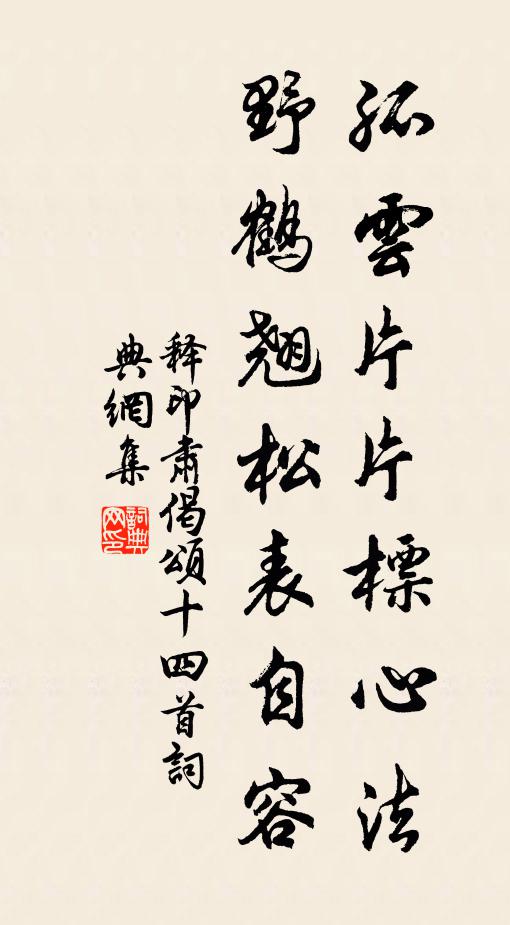 孤雲片片標心法
野鶴翹松表自容
釋印肅偈頌十四首詞
典網集
詞典網印